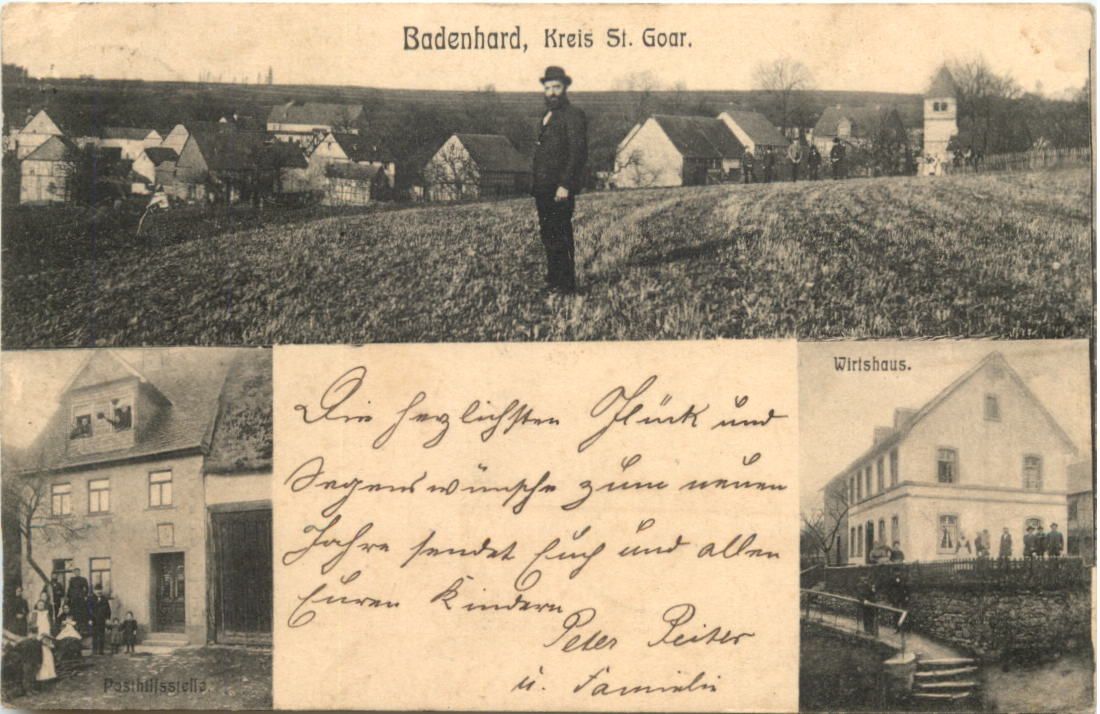 Badenhard, Kreis St. Goar.
Die herzlichsten Glück und
Segenswünsche zum neuen
Jahre sendet Euch und allen
Euren Kindern
Peter Reiter
u. Familie
Wirtshaus.
Posthilfsstelle.